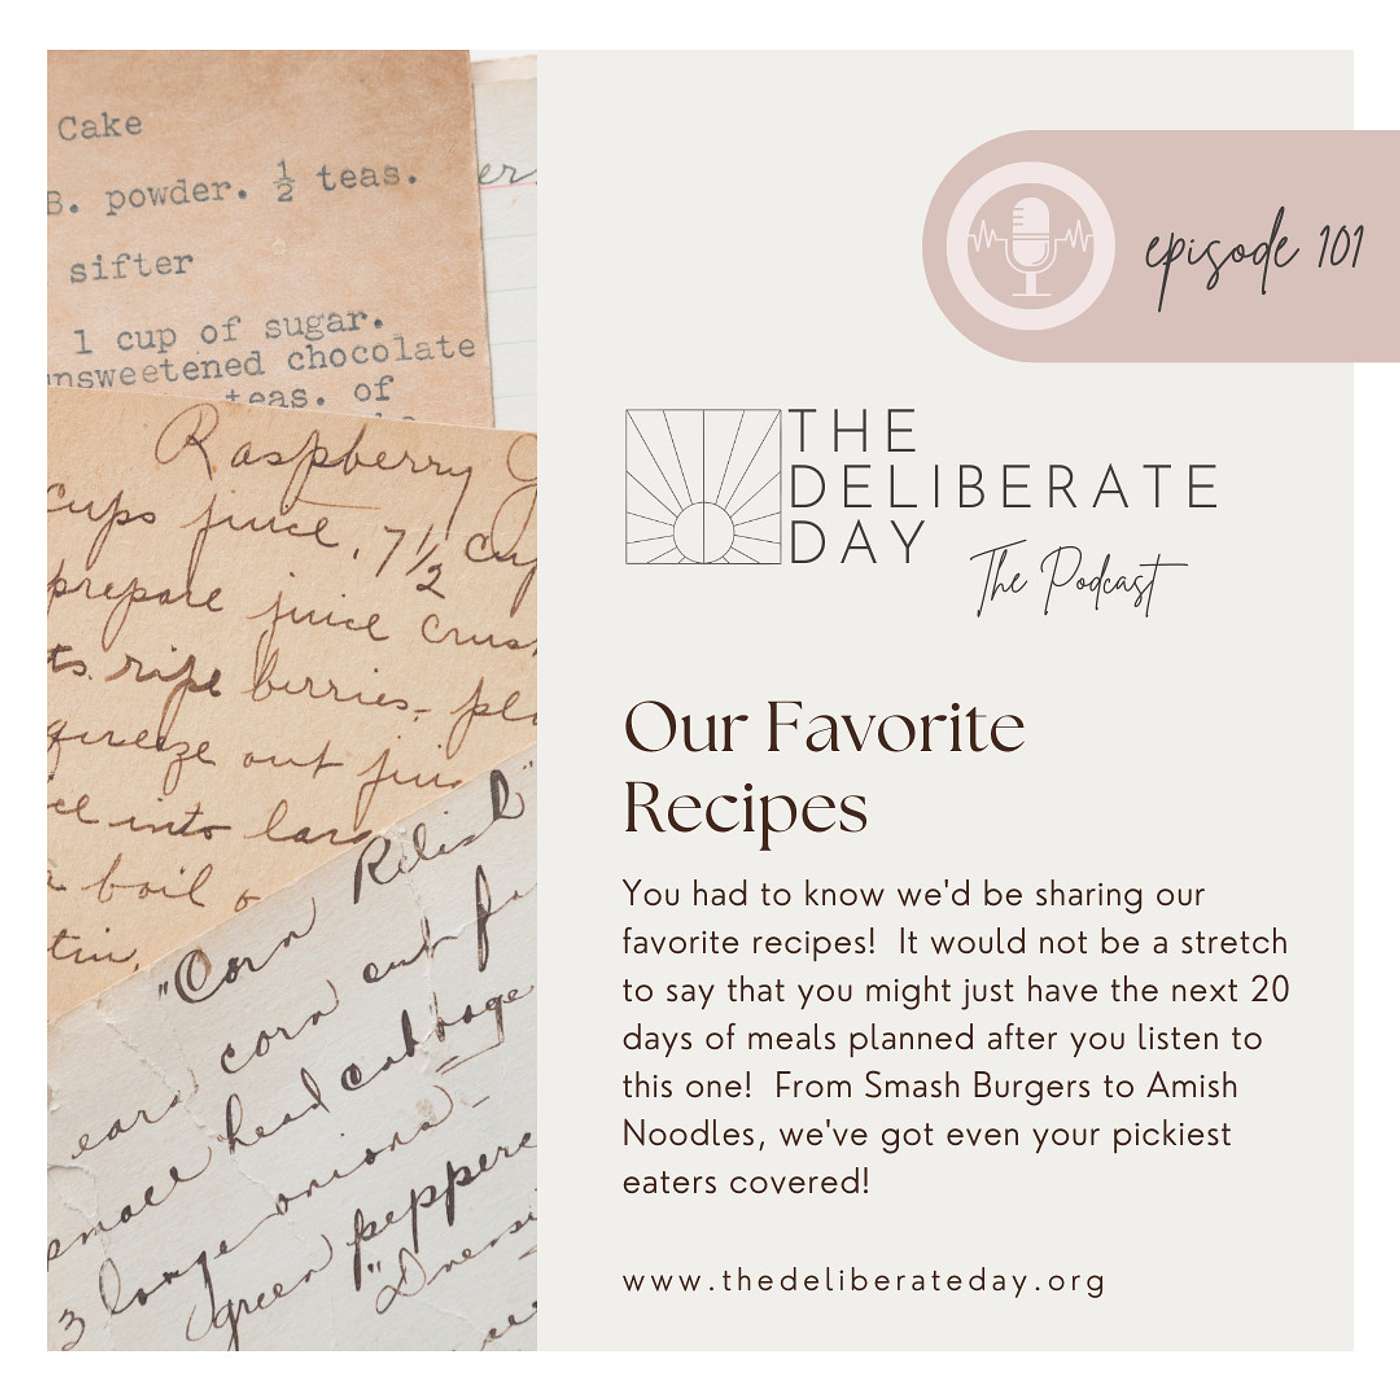 Cake
B. powder. ½ teas.
sifter
1 cup of sugar.
unsweetened chocolate
teas. of
er.
Raspberry J
cups juice, 7½ cup
prepare juice crus
ts. ripe berries,
squeeze out juic
into larg
a boil
"Corn Relish"
corn cut
ears
small head cabbage
3 large onions
green peppers
"Dressi
episode 101
THE
DELIBERATE
DAY
The Podcast
Our Favorite
Recipes
You had to know we'd be sharing our
favorite recipes!  It would not be a stretch
to say that you might just have the next 20
days of meals planned after you listen to
this one!  From Smash Burgers to Amish
Noodles, we've got even your pickiest
eaters covered!
www.thedeliberateday.org